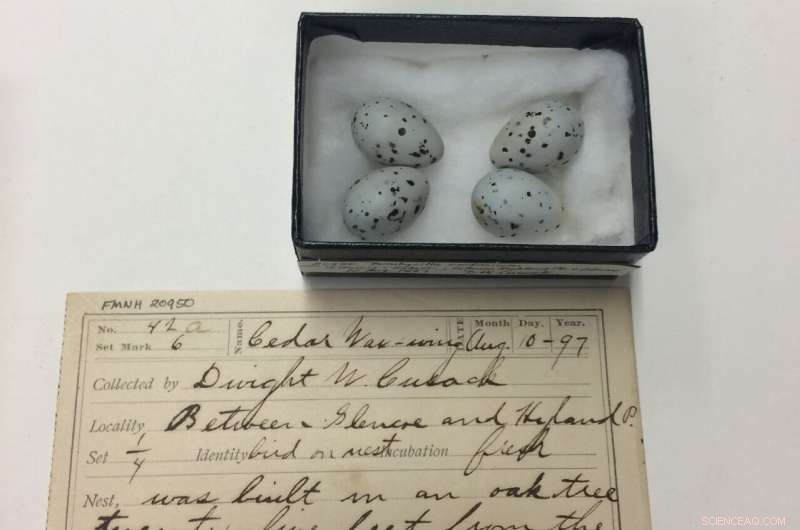 FMNH 20950
No. 42 a Name. Cedar Wax-wing DATE Month Day. Year.
Set Mark 6 Aug. 10-97
Collected by Dwight W. Cusack
Locality Between Glencoe and Hyland P.
Set 1/4 Identity bird on nest Incubation fresh
Nest, was built in an oak tree
feet from the
SCIENCEAQ.COM